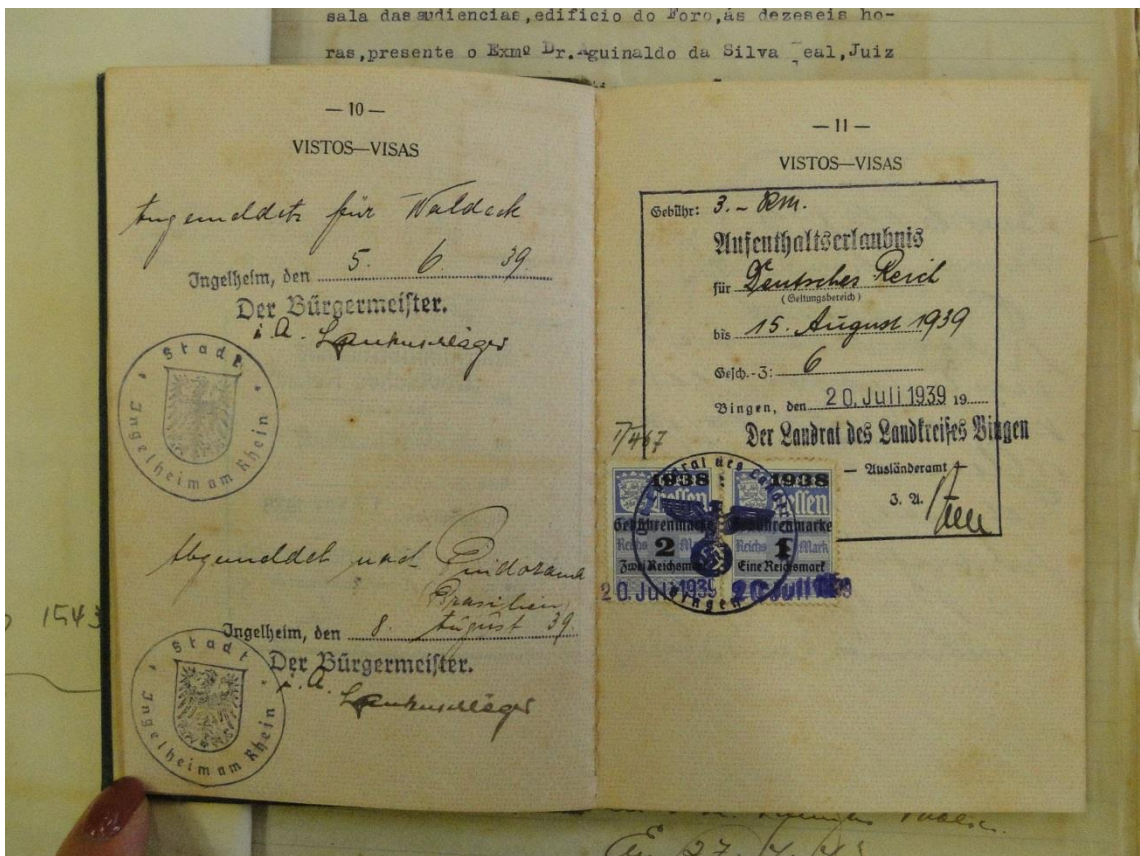 sala das audiencias,edificio do Foro,ás dezeseis ho-
ras,presente o Exmº Dr.Aguinaldo da Silva eal,Juiz
— 10 —
VISTOS—VISAS
Angemeldet für Waldeck
Ingelheim, den 5. 6. 39.
Der Bürgermeister.
i. A.
Stadt Ingelheim am Rhein
Abgemeldet nach
Brasilien
Ingelheim, den 8. August 39.
Der Bürgermeister.
i. A.
Stadt Ingelheim am Rhein
1543
— 11 —
VISTOS—VISAS
Gebühr: 3.- RM.
Aufenthaltserlaubnis
für Deutsches Reich
(Geltungsbereich)
bis 15. August 1939
Gesch.-Z: 6
Bingen, den 20. Juli 1939 19
Der Landrat des Landkreises Bingen
— Ausländeramt —
J. A.
1938 1938
Hessen Hessen
Gebührenmarke Gebührenmarke
Reichs 2 Mark Reichs 1 Mark
Zwei Reichsmark Eine Reichsmark
20. Juli 1939 20. Juli 1939
Bingen